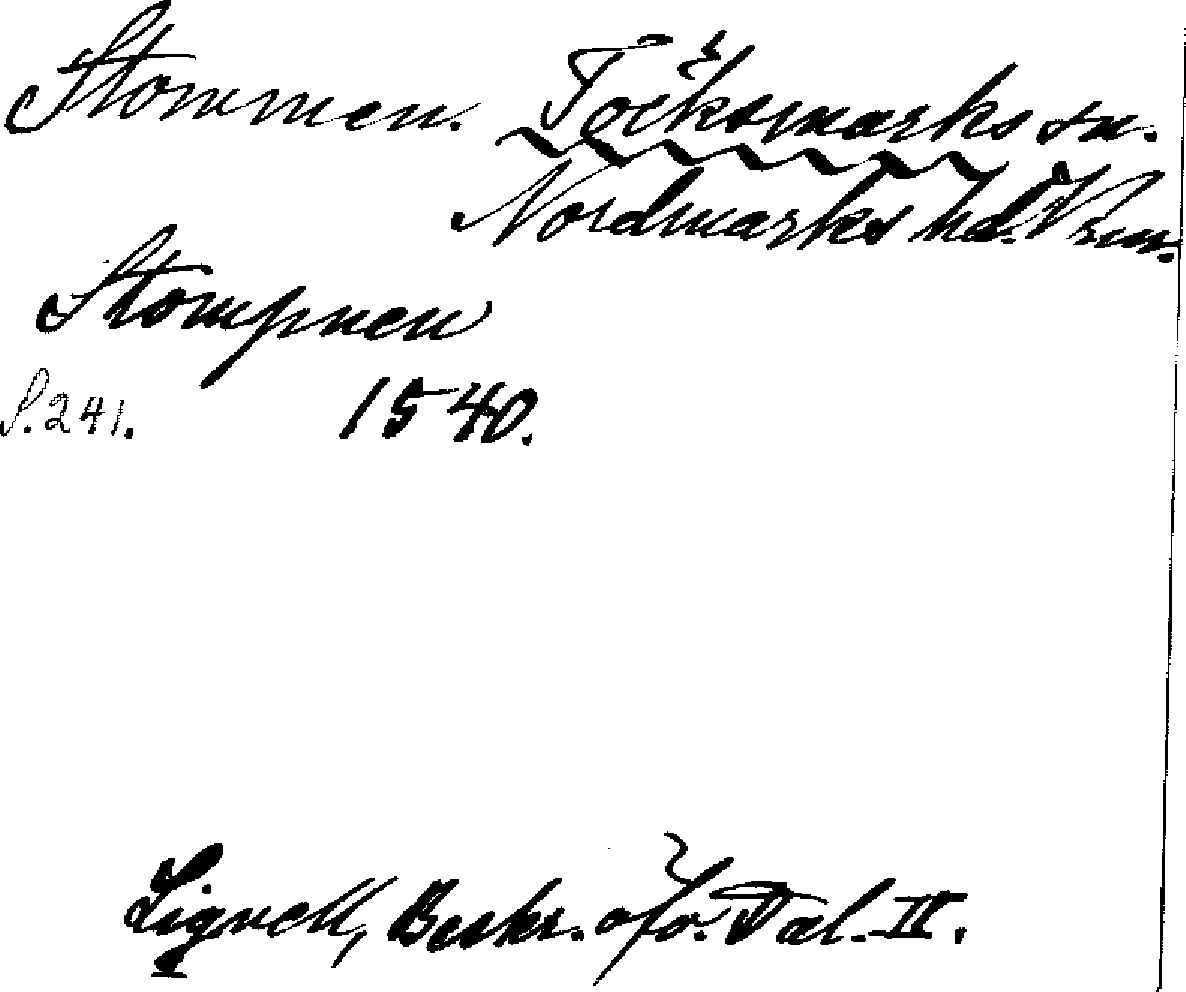 Stommen. Töcksmarks sn.
Nordmarks hd. Vrm.
Stompnen
S. 241. 1540.
Lignell, Beskr. öfv. Dal. II.